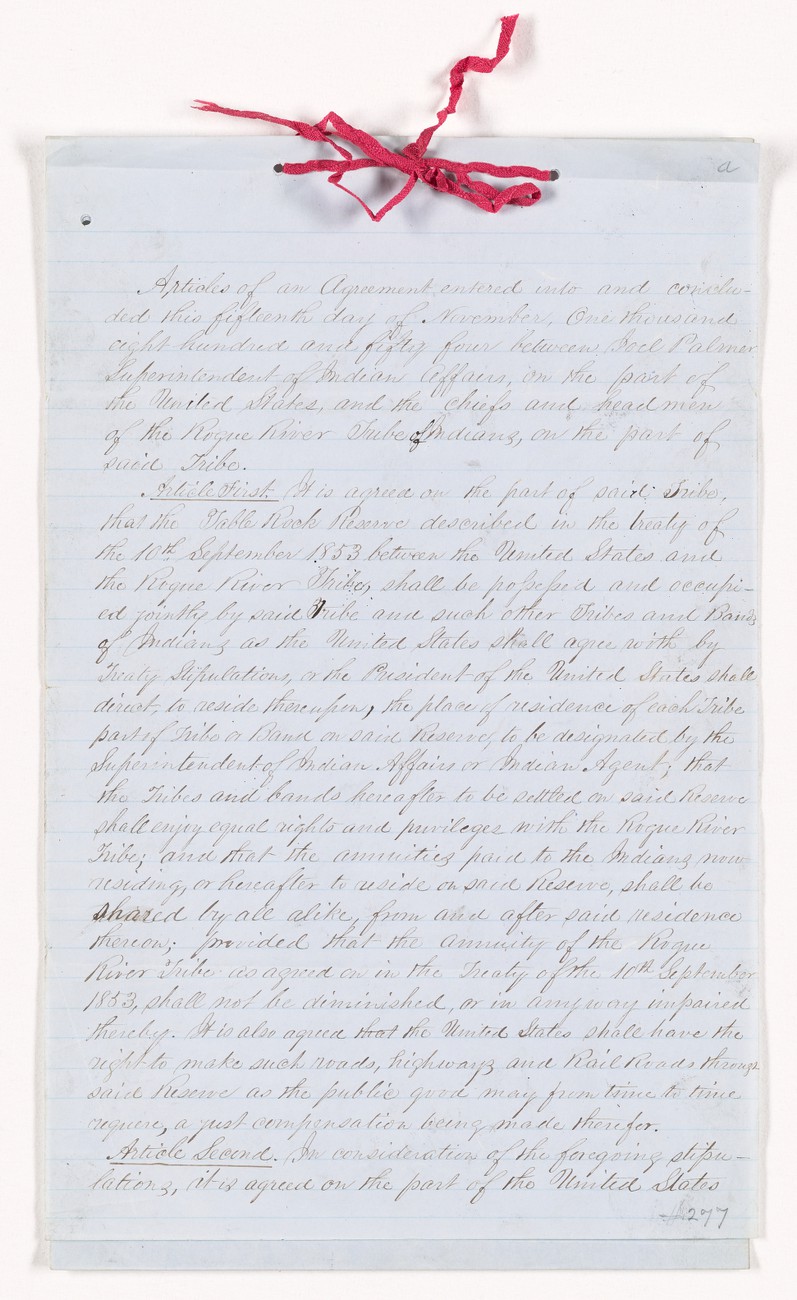 a
Articles of an Agreement entered into and conclu-
ded this fifteenth day of November, One thousand
eight hundred and fifty four between Joel Palmer
Superintendent of Indian Affairs, on the part of
the United States, and the chiefs and head men
of the Rogue River Tribe of Indians, on the part of
said Tribe.
Article First. It is agreed on the part of said Tribe,
that the Table Rock Reserve described in the treaty of
the 10th September 1853 between the United States and
the Rogue River Tribe, shall be possessed and occupi-
ed jointly by said Tribe and such other Tribes and Bands
of Indians as the United States shall agree with by
Treaty Stipulations, or the President of the United States shall
direct, to reside thereupon, the place of residence of each Tribe
part of Tribe or Band on said Reserve, to be designated by the
Superintendent of Indian Affairs or Indian Agent; that
the Tribes and bands hereafter to be settled on said Reserve
shall enjoy equal rights and privileges with the Rogue River
Tribe; and that the annuities paid to the Indians now
residing, or hereafter to reside on said Reserve, shall be
shared by all alike, from and after said residence
thereon; provided that the annuity of the Rogue
River Tribe as agreed on in the Treaty of the 10th September
1853, shall not be diminished, or in any way impaired
thereby. It is also agreed that the United States shall have the
right to make such roads, highways and Rail Roads through
said Reserve as the public good may from time to time
require, a just compensation being made therefor.
Article Second. In consideration of the foregoing stipu-
lations, it is agreed on the part of the United States
277